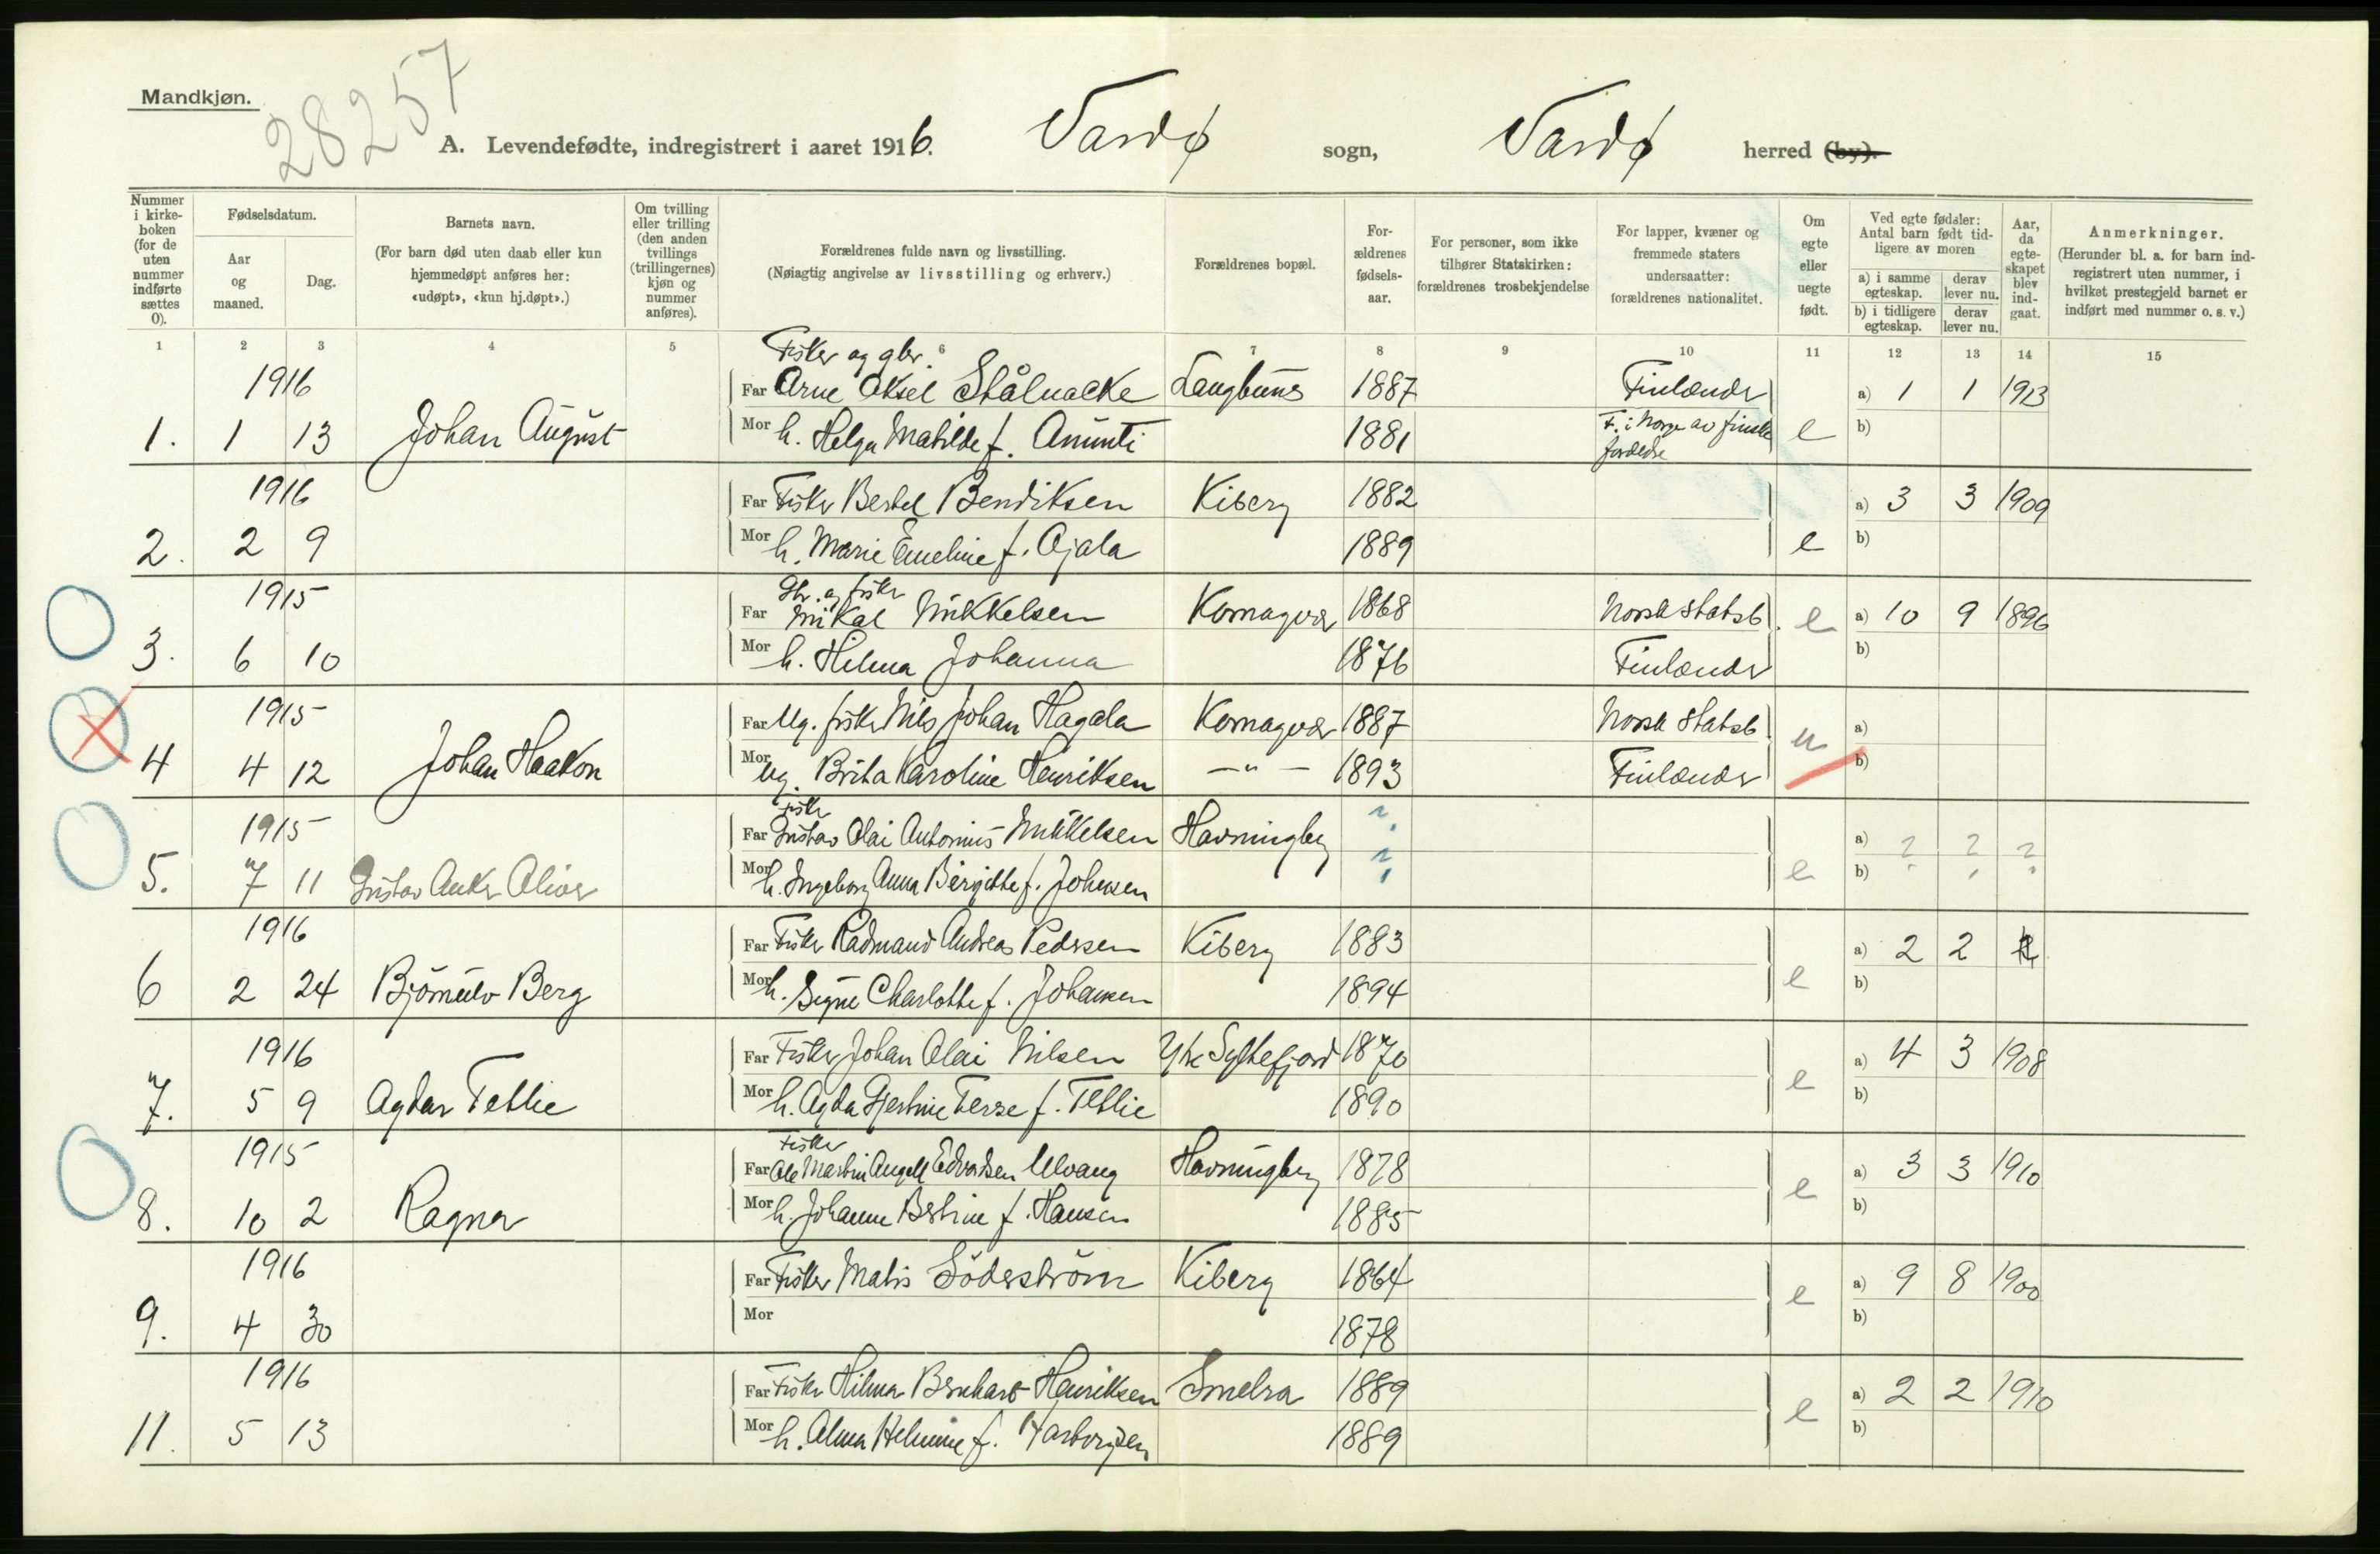 Mandkjøn.
28257
A. Levendefødte, indregistrert i aaret 1916. Vardø sogn, Vardø herred (by).
Nummer i kirkeboken (for de uten nummer indførte sættes 0).
Fødselsdatum.
Aar og maaned.
Dag.
Barnets navn.
(For barn død uten daab eller kun hjemmedøpt anføres her: «udøpt», «kun hj.døpt».)
Om tvilling eller trilling (den anden tvillings (trillingernes) kjøn og nummer anføres).
Forældrenes fulde navn og livsstilling.
(Nøiagtig angivelse av livsstilling og erhverv.)
Forældrenes bopæl.
Forældrenes fødselsaar.
For personer, som ikke tilhører Statskirken: forældrenes trosbekjendelse
For lapper, kvæner og fremmede staters undersaatter: forældrenes nationalitet.
Om egte eller uegte født.
Ved egte fødsler: Antal barn født tidligere av moren
a) i samme egteskap. derav lever nu.
b) i tidligere egteskap. derav lever nu.
Aar, da egteskapet blev indgaat.
Anmerkninger.
(Herunder bl. a. for barn indregistrert uten nummer, i hvilket prestegjeld barnet er indført med nummer o. s. v.)
1 2 3 4 5 6 7 8 9 10 11 12 13 14 15
Fisker og gbr.
1916 Far Arne Aksel Stålnacke Langbunes 1887 Finlænder a) 1 1 1913
1. 1 13 Johan August Mor h. Helga Matilde f. Anunti 1881 F. i Norge av finske forældre e b)
1916 Far Fisker Bertel Bendiksen Kiberg 1882 a) 3 3 1909
2. 2 9 Mor h. Marie Emeline f. Ojala 1889 e b)
Gbr. og fisker
1915 Far Mikal Mikkelsen Komagvær 1868 Norsk statsb. e a) 10 9 1896
3. 6 10 Mor h. Hilma Johanna 1876 Finlænder b)
1915 Far Ug. fisker Nils Johan Hagala Komagvær 1887 Norsk statsb. u a)
4 4 12 Johan Haakon Mor Ug. Brita Karoline Henriksen —"— 1893 Finlænder b)
Fisker
1915 Far Gustav Olai Antonius Mikkelsen Havningberg ? a) ? ? ?
5. 7 11 Gustav Anker Oliver Mor h. Ingeborg Anna Bergitte f. Johnsen ? e b)
1916 Far Fisker Radmand Andreas Pedersen Kiberg 1883 a) 2 2
6 2 24 Bjørnulv Berg Mor h. Signe Charlotte f. Johansen 1894 e b)
1916 Far Fisker Johan Olai Nilsen Ytre Syltefjord 1870 a) 4 3 1908
7. 5 9 Agdar Tetlie Mor h. Agda Gjertine Terese f. Tetlie 1890 e b)
Fisker
1915 Far Ole Martin Angell Edvardsen Ulvang Havningberg 1878 a) 3 3 1910
8. 10 2 Ragnar Mor h. Johanne Bertine f. Hansen 1885 e b)
1916 Far Fisker Matis Söderström Kiberg 1864 a) 9 8 1900
9. 4 30 Mor 1878 e b)
1916 Far Fisker Hilmar Bernhard Henriksen Smelrø 1889 a) 2 2 1910
11. 5 13 Mor h. Alma Helmine f. 1889 e b)